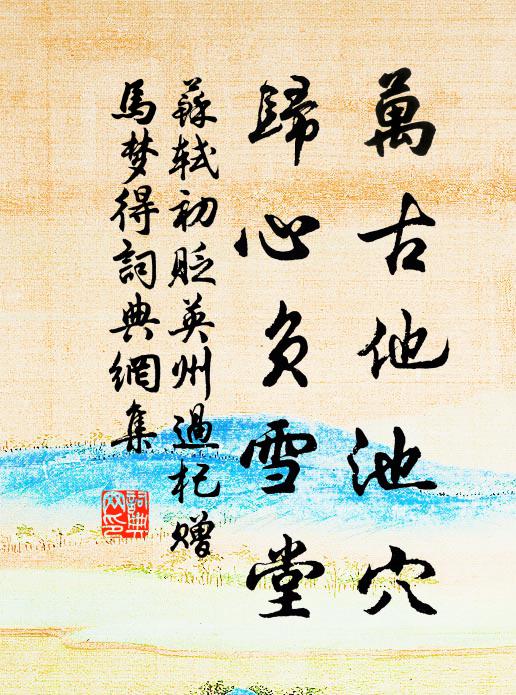 萬古他池穴
歸心負雪堂
蘇軾初貶英州過杞贈
馬梦得詞典網集
詞典網印